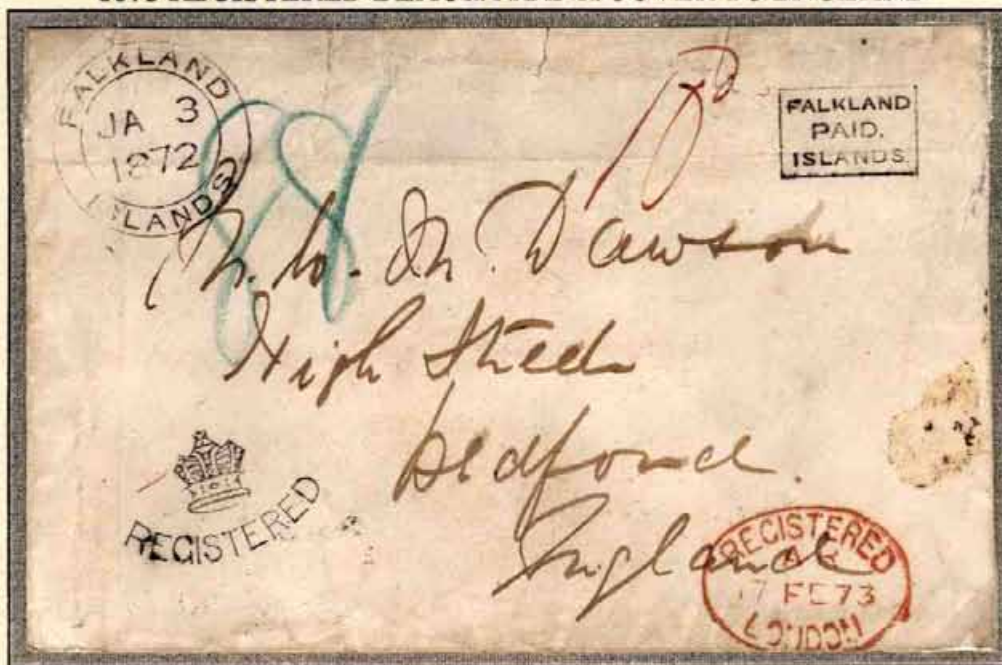 FALKLAND
ISLANDS
JA 3
1872
FALKLAND
PAID.
ISLANDS.
Dawson
High Street
Bedford.
England
REGISTERED
REGISTERED
17 FE 73
LONDON